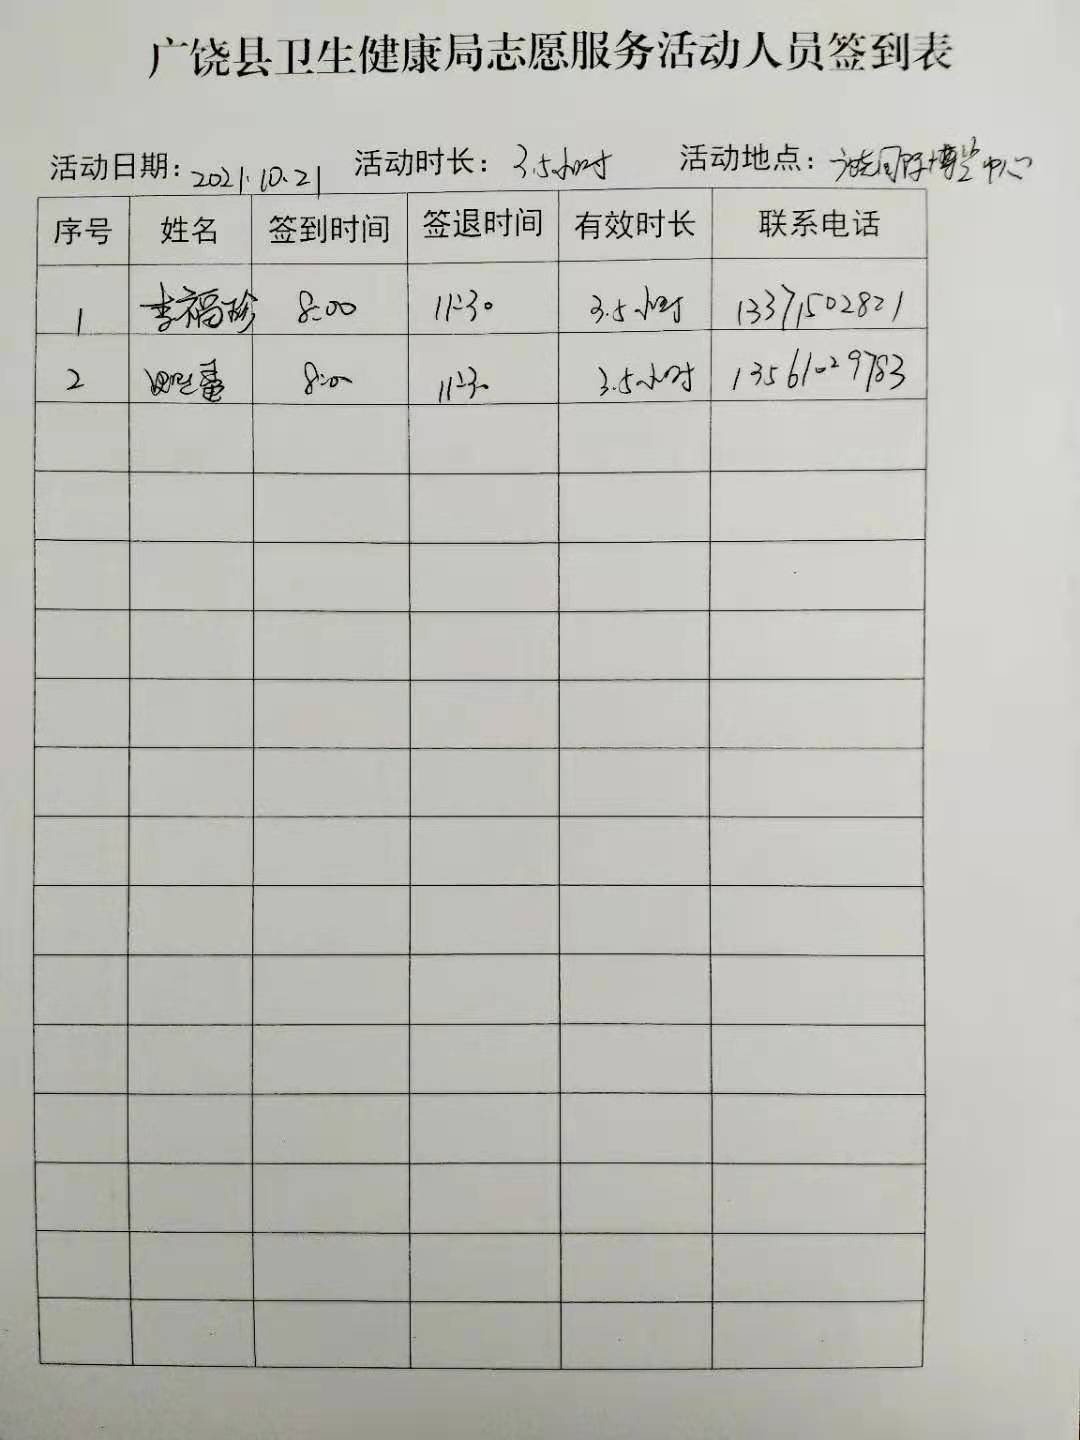 广饶县卫生健康局志愿服务活动人员签到表
活动日期：2021.10.21 活动时长：3.5小时 活动地点：广饶国际博览中心
序号 姓名 签到时间 签退时间 有效时长 联系电话
1 李福珍 8:00 11:30 3.5小时 13371502821
2 8:00 11:30 3.5小时 13561029783